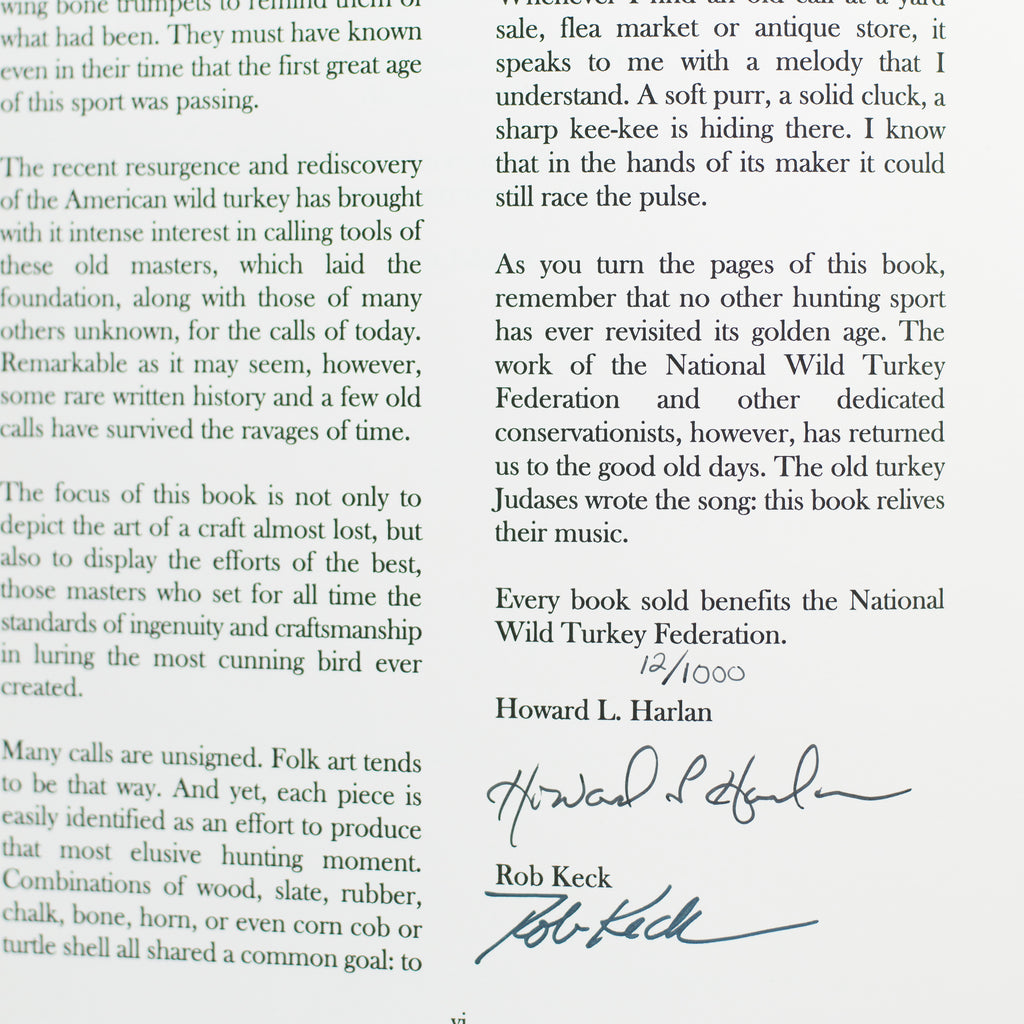 wing bone trumpets to remind them of
what had been. They must have known
even in their time that the first great age
of this sport was passing.
The recent resurgence and rediscovery
of the American wild turkey has brought
with it intense interest in calling tools of
these old masters, which laid the
foundation, along with those of many
others unknown, for the calls of today.
Remarkable as it may seem, however,
some rare written history and a few old
calls have survived the ravages of time.
The focus of this book is not only to
depict the art of a craft almost lost, but
also to display the efforts of the best,
those masters who set for all time the
standards of ingenuity and craftsmanship
in luring the most cunning bird ever
created.
Many calls are unsigned. Folk art tends
to be that way. And yet, each piece is
easily identified as an effort to produce
that most elusive hunting moment.
Combinations of wood, slate, rubber,
chalk, bone, horn, or even corn cob or
turtle shell all shared a common goal: to
Whenever I find an old call at a yard
sale, flea market or antique store, it
speaks to me with a melody that I
understand. A soft purr, a solid cluck, a
sharp kee-kee is hiding there. I know
that in the hands of its maker it could
still race the pulse.
As you turn the pages of this book,
remember that no other hunting sport
has ever revisited its golden age. The
work of the National Wild Turkey
Federation and other dedicated
conservationists, however, has returned
us to the good old days. The old turkey
Judases wrote the song: this book relives
their music.
Every book sold benefits the National
Wild Turkey Federation.
12/1000
Howard L. Harlan
Howard L Harlan
Rob Keck
Rob Keck
vi